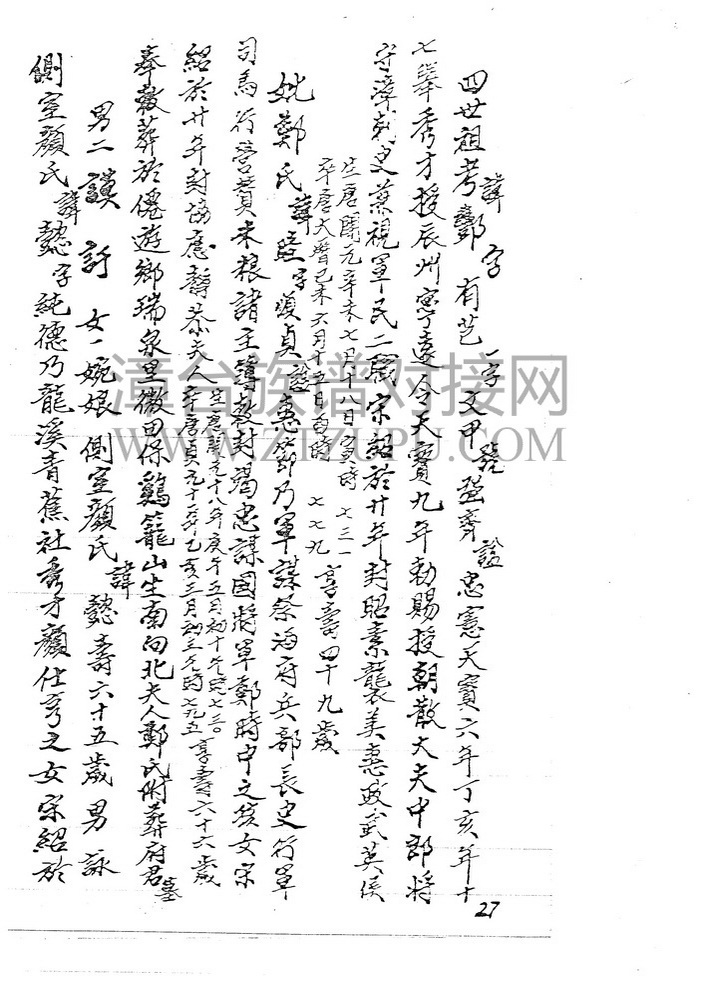 四世祖考諱酆字有芑一字文甲號益齊諡忠憲天寶六年丁亥年十
七舉秀才授辰州寧遠令天寶九年勅賜授朝散大夫中郎將
守漳刺史兼視軍民二閫宋紹於廿年封昭素襲美惠政武英侯
生唐開元辛未七月十八日寅時 七三一
卒唐大曆己未六月十五日酉時 七七九 享壽四十九歲
妣鄭氏諱瞳字復貞諡惠節乃軍謀祭海府兵部長史行軍
司馬行營賛米粮諸主簿敕封竭忠謀國將軍鄭時中之女宋
紹於廿年封協應靜恭夫人生唐開元十八年庚午五月初十午時七三〇
卒唐貞元十一年乙亥三月初三午時七九五享壽六十六歲
奉敕葬於僊遊鄉瑞泉里徵田保鷄籠山坐南向北夫人鄭氏附葬府君墓
男二謨訏女一婉娘側室顏氏諱懿壽六十五歲男詠
側室顏氏諱懿字純德乃龍溪青蕉社秀才顏仕亨之女宋紹於
27
漳台族谱对接网
WWW.ZTZUPU.COM